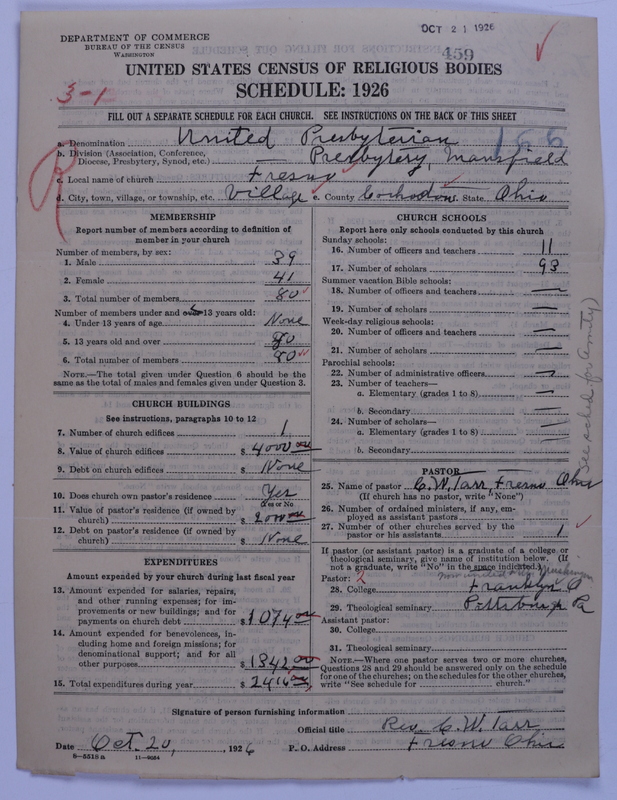 OCT 21 1926
459
DEPARTMENT OF COMMERCE
BUREAU OF THE CENSUS
WASHINGTON
UNITED STATES CENSUS OF RELIGIOUS BODIES
SCHEDULE: 1926
3-1
FILL OUT A SEPARATE SCHEDULE FOR EACH CHURCH. SEE INSTRUCTIONS ON THE BACK OF THIS SHEET
166
a. Denomination United Presbyterian
b. Division (Association, Conference,
Diocese, Presbytery, Synod, etc.) — Presbytery, Mansfield
c. Local name of church Fresno
d. City, town, village, or township, etc. Village e. County Coshocton f. State Ohio
MEMBERSHIP
Report number of members according to definition of
member in your church
Number of members, by sex:
1. Male 39
2. Female 41
3. Total number of members 80
Number of members under and over 13 years old:
4. Under 13 years of age None
5. 13 years old and over 80
6. Total number of members 80
NOTE.—The total given under Question 6 should be the
same as the total of males and females given under Question 3.
CHURCH BUILDINGS
See instructions, paragraphs 10 to 12
7. Number of church edifices 1
8. Value of church edifices $ 4000 00
9. Debt on church edifices $ None
10. Does church own pastor's residence Yes
(Yes or No)
11. Value of pastor's residence (if owned by
church) $ 2000 00
12. Debt on pastor's residence (if owned by
church) $ None
EXPENDITURES
Amount expended by your church during last fiscal year
13. Amount expended for salaries, repairs,
and other running expenses; for im-
provements or new buildings; and for
payments on church debt $ 1074 00
14. Amount expended for benevolences, in-
cluding home and foreign missions; for
denominational support; and for all
other purposes $ 1342 00
15. Total expenditures during year $ 2416 00
CHURCH SCHOOLS
Report here only schools conducted by this church
Sunday schools:
16. Number of officers and teachers 11
17. Number of scholars 93
Summer vacation Bible schools:
18. Number of officers and teachers —
19. Number of scholars —
Week-day religious schools:
20. Number of officers and teachers —
21. Number of scholars —
Parochial schools:
22. Number of administrative officers —
23. Number of teachers—
a. Elementary (grades 1 to 8) —
b. Secondary —
24. Number of scholars—
a. Elementary (grades 1 to 8) —
b. Secondary —
See sched for Amity)
PASTOR
25. Name of pastor C. W. Tarr Fresno Ohio
(If church has no pastor, write "None")
26. Number of ordained ministers, if any, em-
ployed as assistant pastors
27. Number of other churches served by the
pastor or his assistants 1
If pastor (or assistant pastor) is a graduate of a college or
theological seminary, give name of institution below. (If
not a graduate, write "No" in the space indicated.)
now united with Muskingum
Pastor: 2
28. College Franklin O
29. Theological seminary Pittsburgh Pa
Assistant pastor:
30. College
31. Theological seminary
NOTE.—Where one pastor serves two or more churches,
Questions 28 and 29 should be answered only on the schedule
for one of the churches; on the schedules for the other churches,
write "See schedule for church."
Signature of person furnishing information
Official title Rev. C. W. Tarr
Date Oct. 20, 1926 P. O. Address Fresno Ohio
8-5518 a 11-9064